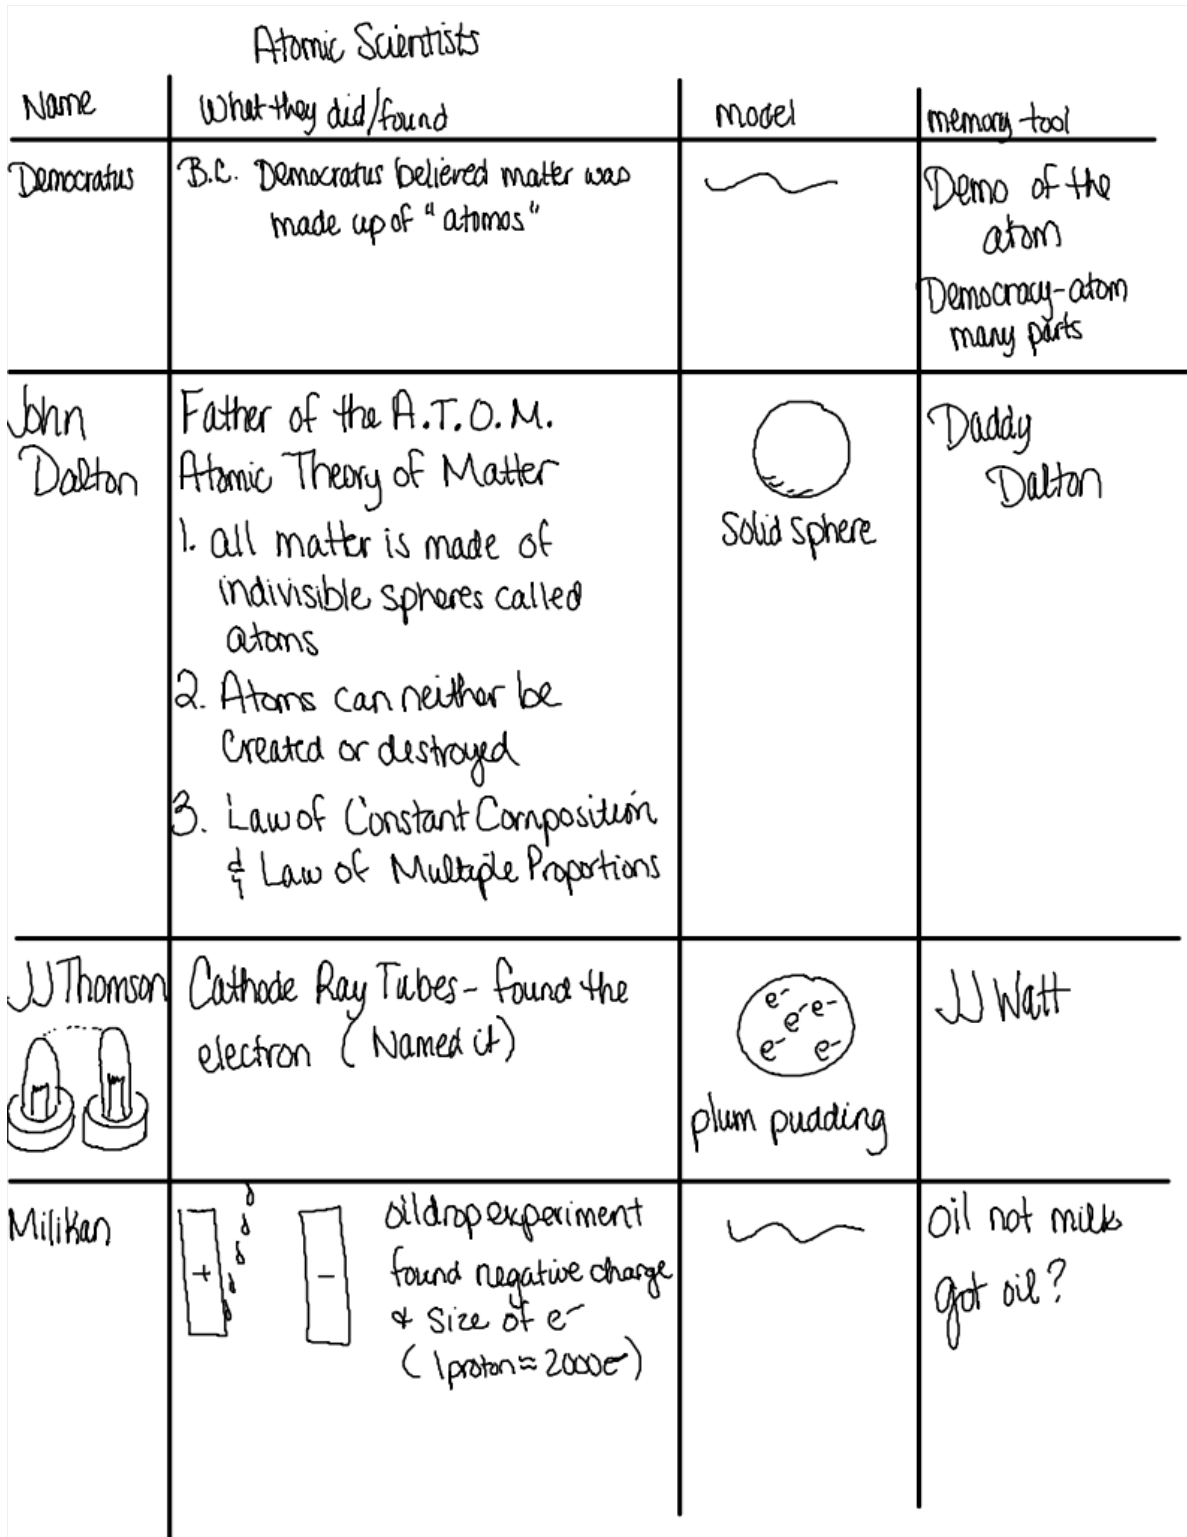 Atomic Scientists
Name
What they did/found
model
memory tool
Democratus
B.C. Democratus believed matter was
made up of "atomos"
Demo of the
atom
Democracy-atom
many parts
John
Dalton
Father of the A.T.O.M.
Atomic Theory of Matter
1. all matter is made of
indivisible spheres called
atoms
2. Atoms can neither be
created or destroyed
3. Law of Constant Composition
& Law of Multiple Proportions
Solid sphere
Daddy
Dalton
JJ Thomson
Cathode Ray Tubes - found the
electron (Named it)
e-
e- e-
e- e-
plum pudding
JJ Watt
Milikan
+
-
oil drop experiment
found negative charge
& size of e-
(1 proton ≈ 2000e-)
oil not milk
got oil?